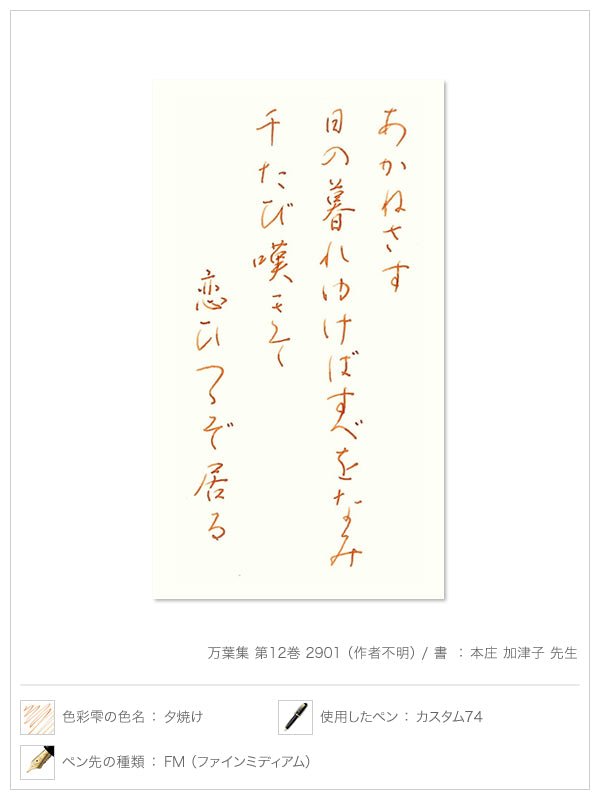 あかねさす
日の暮れゆけばすべをなみ
千たび嘆きて
恋ひつゝぞ居る
万葉集 第12巻 2901（作者不明）/ 書 ：本庄 加津子 先生
色彩雫の色名 ： 夕焼け
使用したペン ： カスタム74
ペン先の種類 ： FM（ファインミディアム）